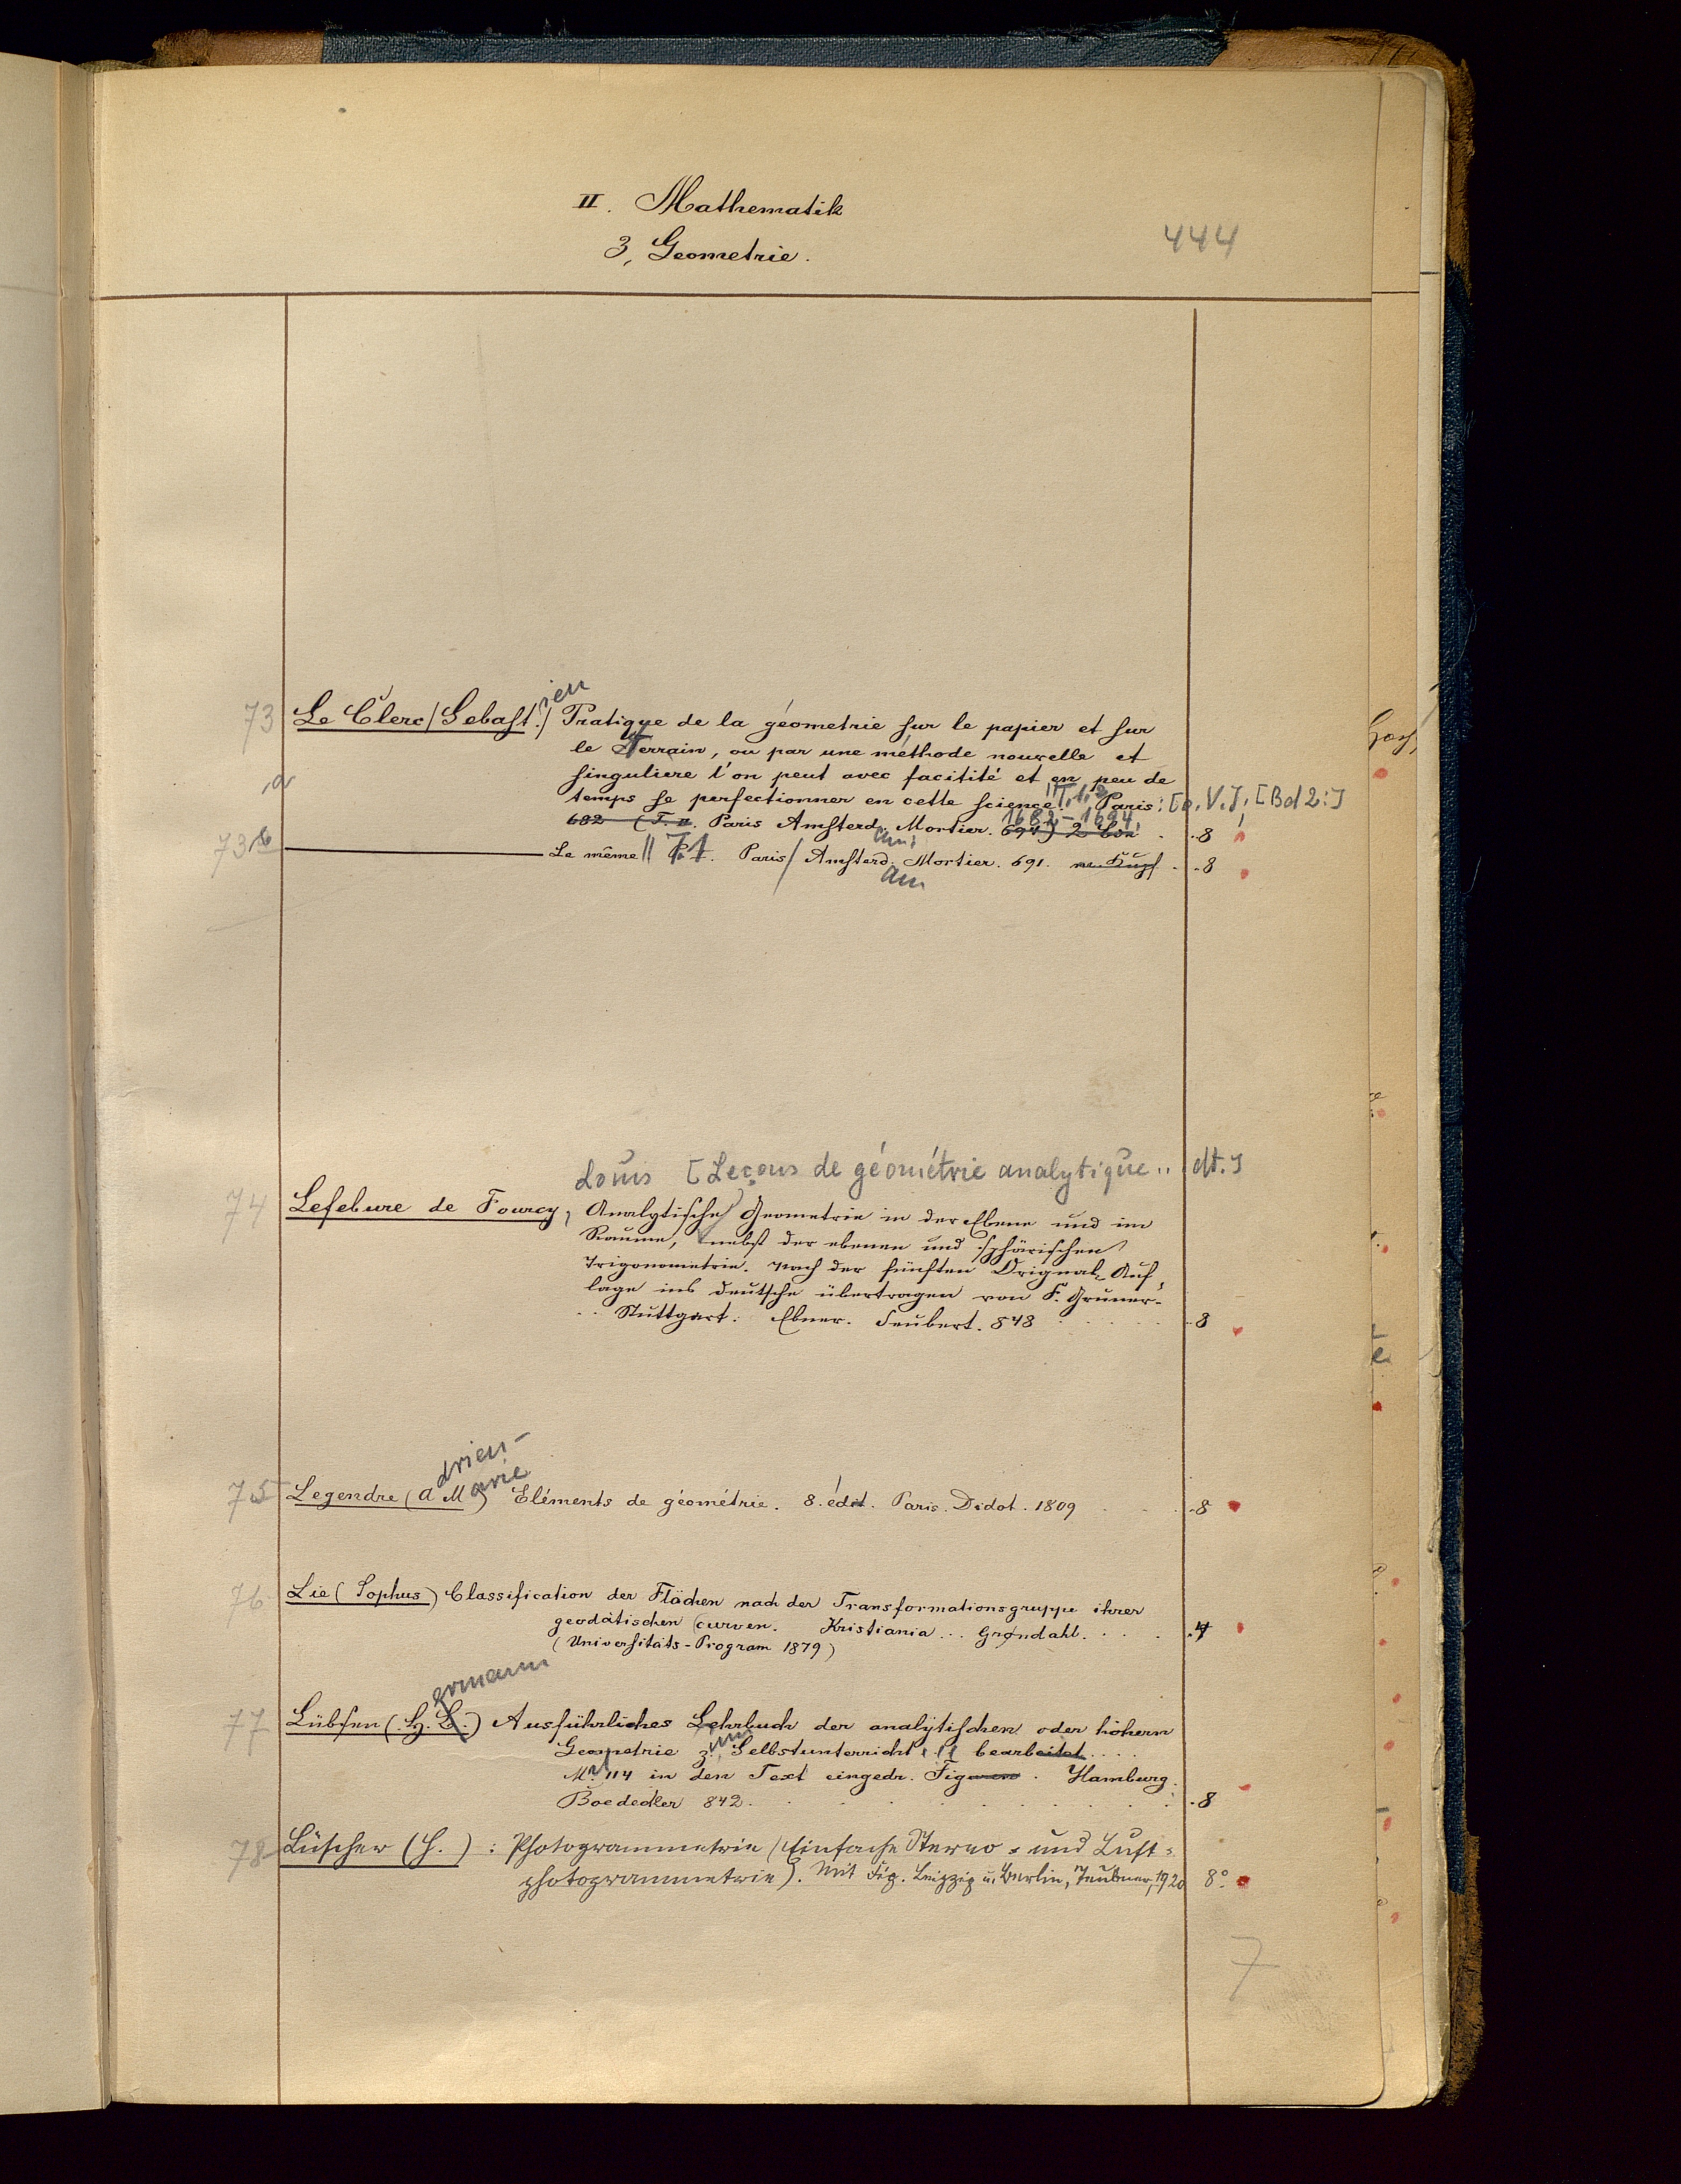 II. Mathematik
444
3, Geometrie.
ien
73 Le Clerc (Sebast.) Pratique de la géometrie sur le papier et sur
le Terrain, ou par une méthode nouvelle et
a singuliere l'on peut avec facitité et en peu de
temps se perfectionner en cette science. T. 1. 2 Paris: [o. V.], [Bd 2:]
1682-1694,
682 (T. II. Paris Amsterd. Mortier. 694) 2 Bde . . 8
am:
73 b Le même T. 1. Paris / Amsterd. Mortier. 691. m. Kupf . . 8
am
Louis [Leçons de géométrie analytique .. dt.]
74 Lefebure de Fourcy, Analytische Geometrie in der Ebene und im
Raume, nebst der ebenen und sphärischen
Trigonometrie. Nach der fünften Orignal-Auf-
lage ins deutsche übertragen von F. Gruner.
Stuttgart. Ebner. Seubert. 848 . . 8
drien-
arie
75 Legendre (A M) Eléments de géométrie. 8. édit. Paris. Didot. 1809 . 8
76 Lie (Sophus) Classification der Flächen nach der Transformationsgruppe ihrer
geodätischen Curven. Kristiania... Grøndahl. . . . 4
(Universitäts-Program 1879)
ermann
77 Lübsen (H. B.) Ausführliches Lehrbuch der analytischen oder höhern
um
Geometrie z. Selbstunterricht bearbeitet ....
M. 114 in den Text eingedr. Figuren. Hamburg.
Boededker 842. . . 8
78 Lüscher (H.): Photogrammetrie (Einfache Stereo- und Luft-
photogrammetrie). Mit Fig. Leipzig u. Berlin, Teubner, 1920 8°
7